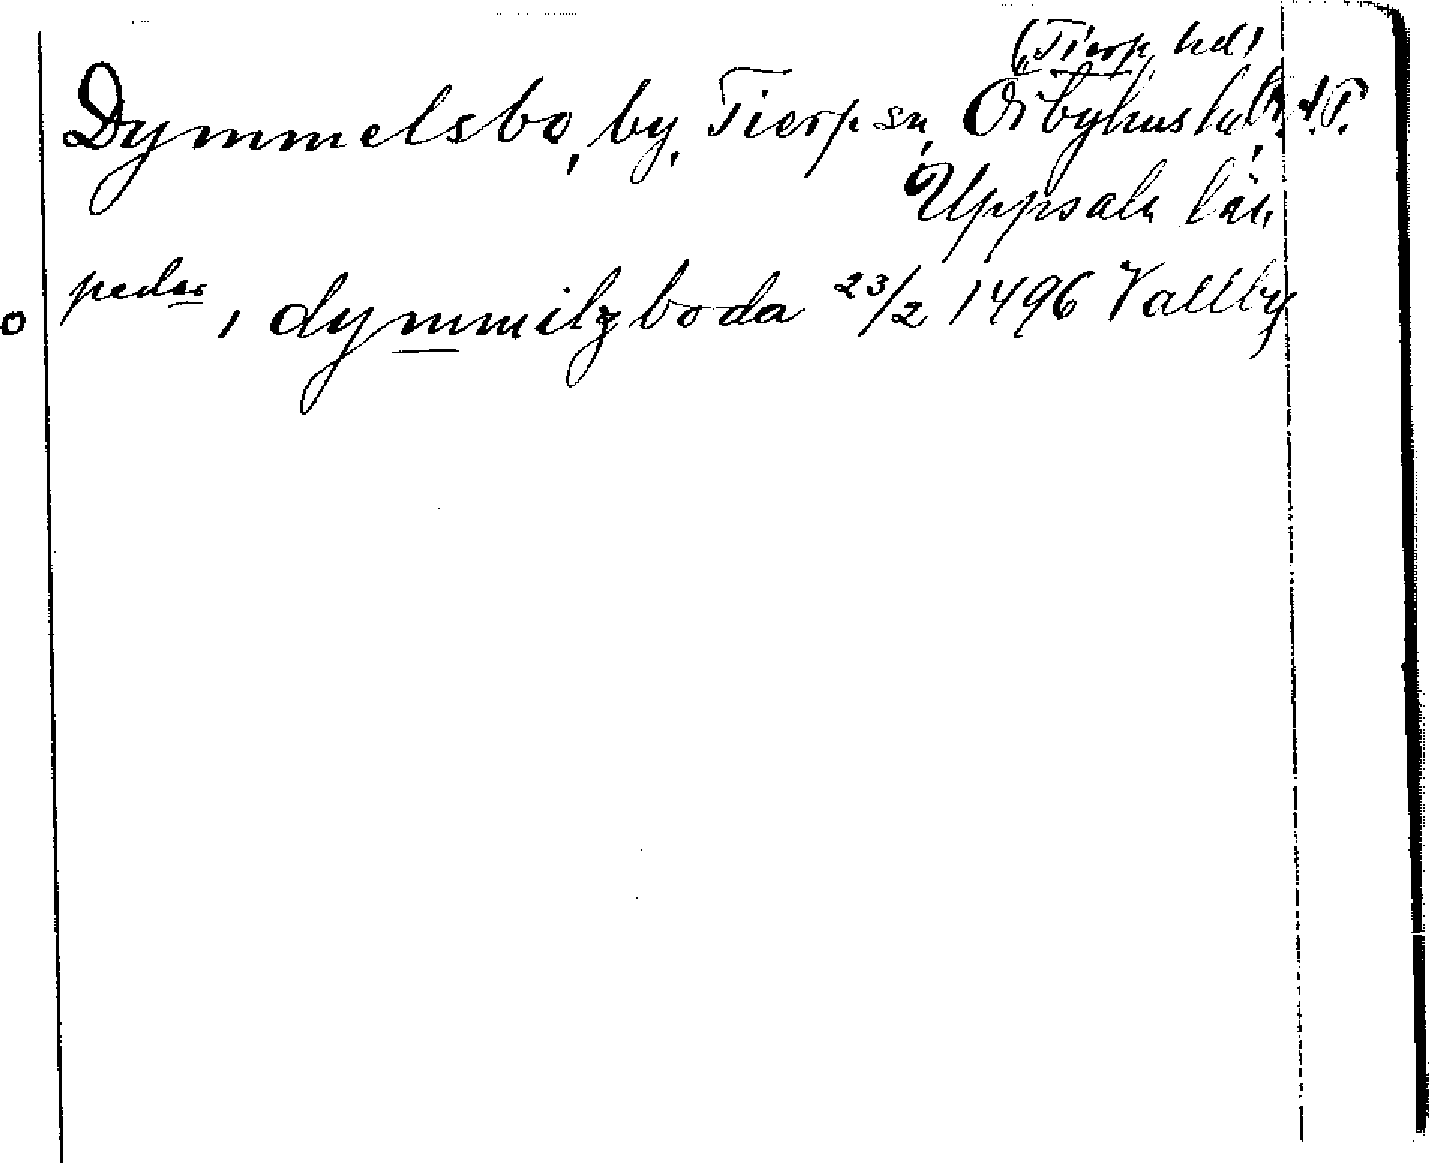 (Tierp hd)
Dymmelsbo, by, Tierp sn, Örbyhus hd,
Uppsala län
peder i dymmilzboda 23/2 1496 Vallby